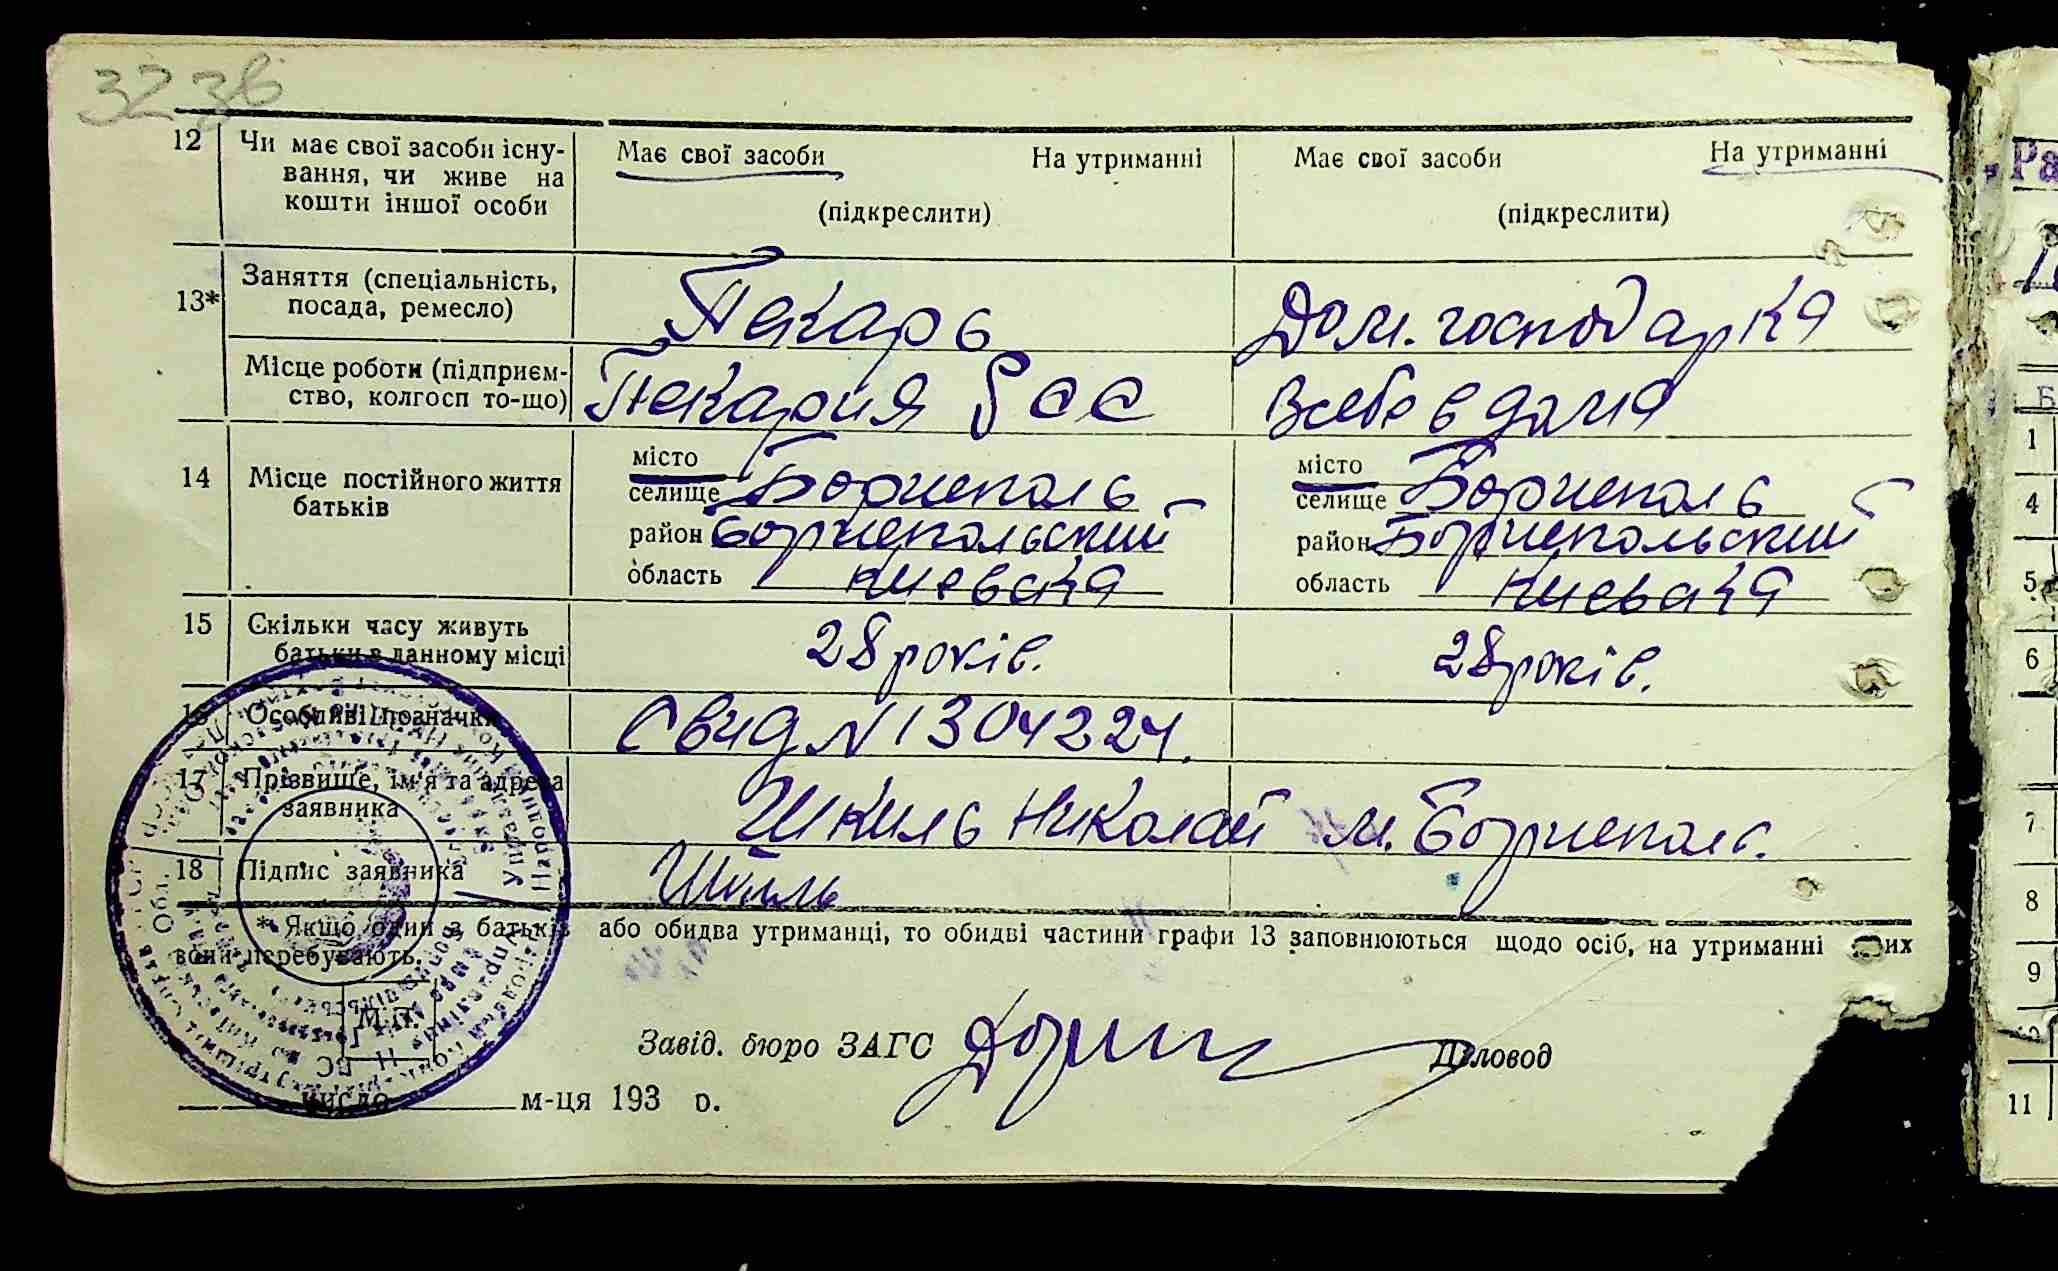 32 зв
12 Чи має свої засоби існу- Має свої засоби На утриманні Має свої засоби На утриманні
вання, чи живе на
кошти іншої особи (підкреслити) (підкреслити)
13* Заняття (спеціальність, Пекарь Дом. господарка
посада, ремесло)
Місце роботи (підприєм- Пекария
ство, колгосп то-що) в дома
14 Місце постійного життя місто місто
батьків селище Бориспол ь селище Бориспол ь
район Бориспольский район Бориспольский
область Киевска область Киевска
15 Скільки часу живуть 28 років. 28 років.
батьки в данному місці
16 Особливі позначки Свид N 1304224.
17 Прізвище, ім'я та адреса Шкиль Николай м. Бориспол ь.
заявника
18 Підпис заявника Шкиль
* Якщо один з батьків або обидва утриманці, то обидві частини графи 13 заповнюються щодо осіб, на утриманні яких
вони перебувають.
М.П.
Завід. бюро ЗАГС Діловод
число м-ця 193 о.
Ра
Б
1
4
5
6
7
8
9
10
11